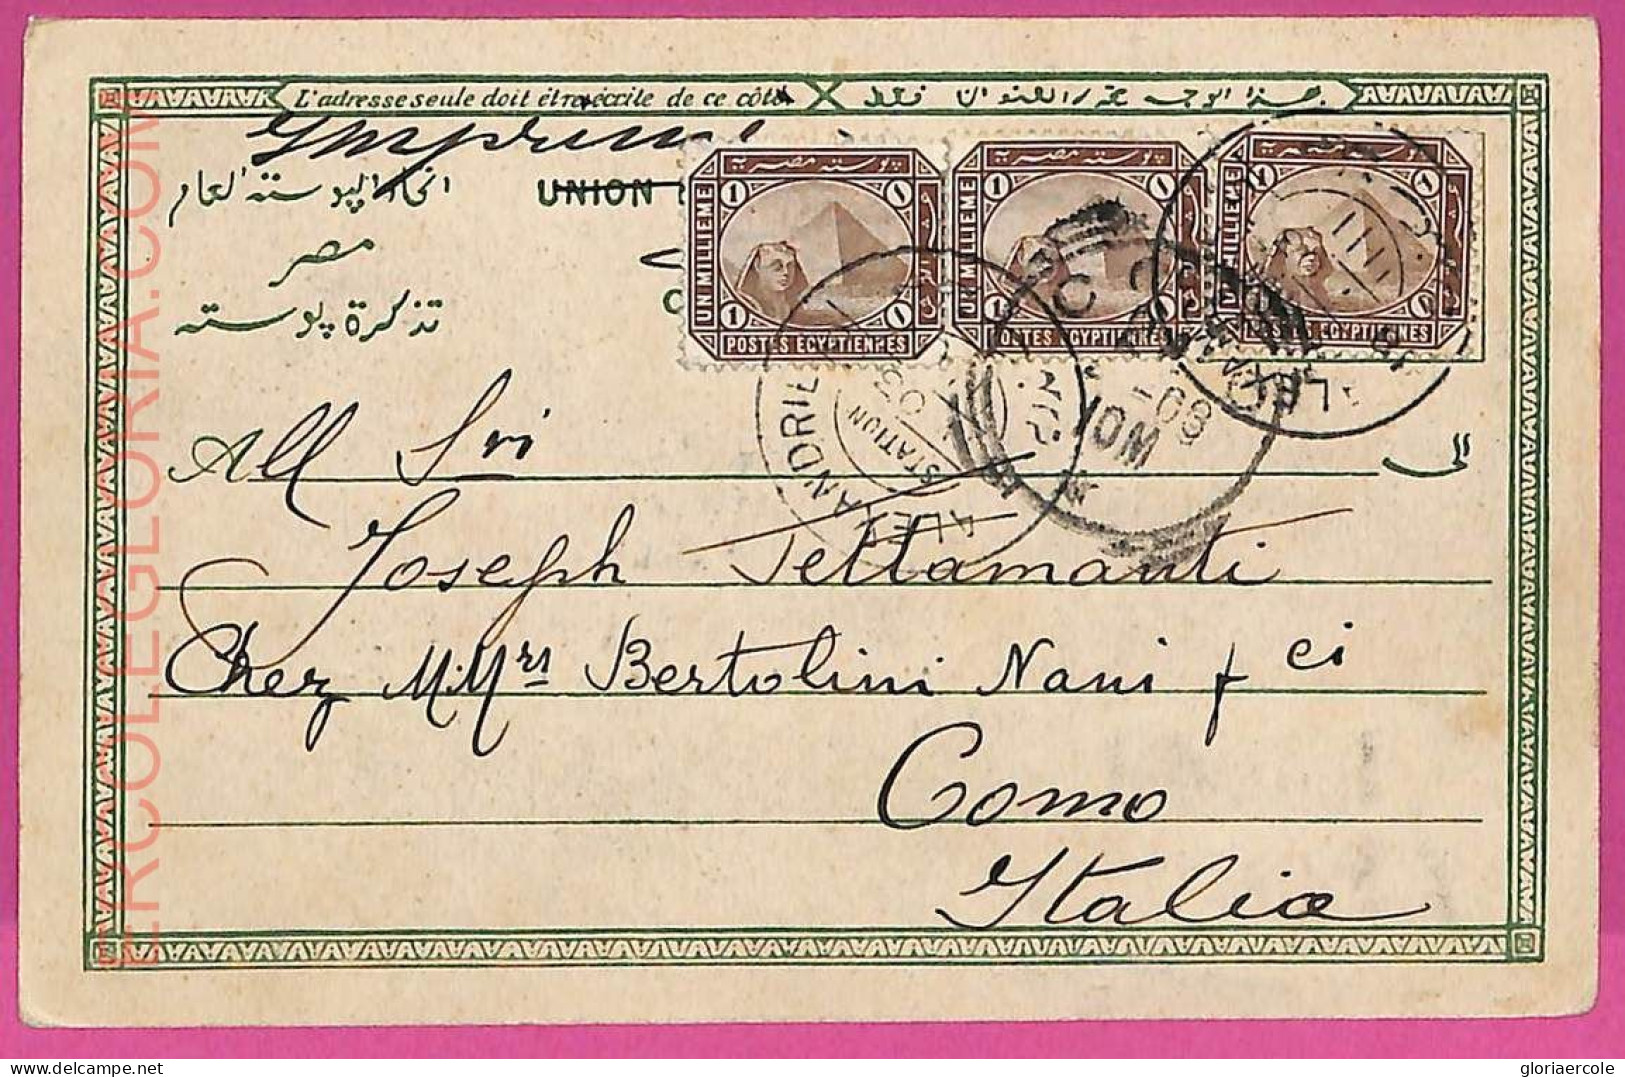 L'adresse seule doit être écrite de ce côté
هذا الوجه مخصص للعنوان فقط
Imprimé
اتحاد البوسته العام
UNION
مصر
تذكرة بوسته
بوسته مصريه
UN MILLIEME
1
POSTES EGYPTIENNES
بوسته مصريه
UN MILLIEME
1
POSTES EGYPTIENNES
UN MILLIEME
1
POSTES EGYPTIENNES
STATION
COMO
All Sri
الى
Joseph Tettamanti
Chez M. Mrs Bertolini Nani & Ci
Como
Italia
ERCOLEGLORIA.COM
gloriaercole